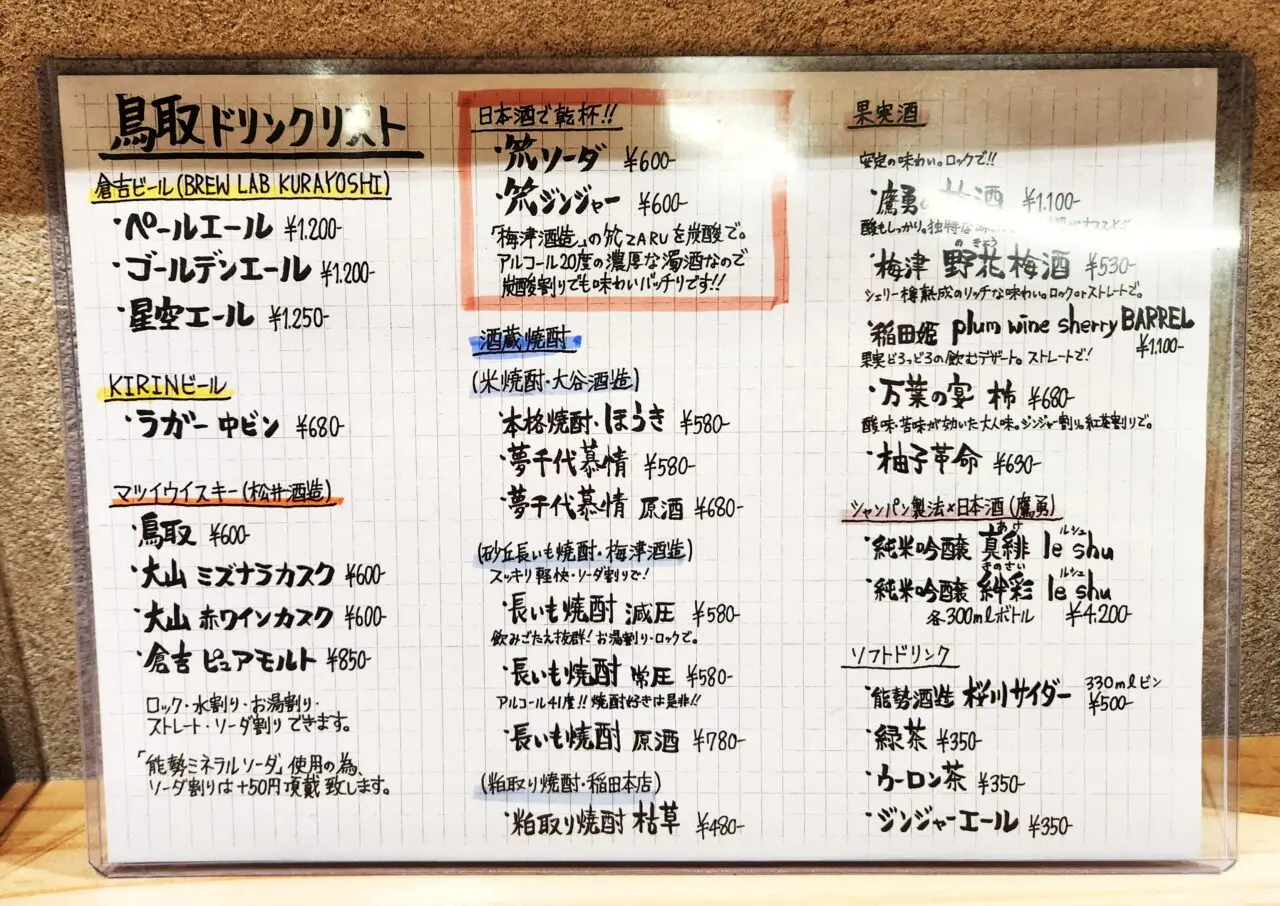 鳥取ドリンクリスト
倉吉ビール(BREW LAB KURAYOSHI)
・ペールエール ¥1.200-
・ゴールデンエール ¥1.200-
・星空エール ¥1.250-
KIRINビール
・ラガー 中ビン ¥680-
マツイウイスキー(松井酒造)
・鳥取 ¥600-
・大山 ミズナラカスク ¥600-
・大山 赤ワインカスク ¥600-
・倉吉 ピュアモルト ¥850-
ロック・水割り・お湯割り・
ストレート・ソーダ割りできます。
「能勢ミネラルソーダ」使用の為、
ソーダ割りは+50円頂戴致します。
日本酒で乾杯!!
・笊ソーダ ¥600-
・笊ジンジャー ¥600-
「梅津酒造」の笊ZARUを炭酸で。
アルコール20度の濃厚な濁酒なので
炭酸割りでも味わいバッチリです!!
酒蔵焼酎
(米焼酎・大谷酒造)
・本格焼酎・ほうき ¥580-
・夢千代慕情 ¥580-
・夢千代慕情 原酒 ¥680-
(砂丘長いも焼酎・梅津酒造)
スッキリ軽快・ソーダ割りで!
・長いも焼酎 減圧 ¥580-
飲みごたえ抜群!お湯割り・ロックで。
・長いも焼酎 常圧 ¥580-
アルコール41度!!焼酎好きは是非!!
・長いも焼酎 原酒 ¥780-
(粕取り焼酎・稲田本店)
・粕取り焼酎 枯草 ¥480-
果実酒
安定の味わい。ロックで!!
・鷹勇の 酒 ¥1.100-
酸もしっかり。独特な
のきょう
・梅津 野花梅酒 ¥530-
シェリー樽熟成のリッチな味わい。ロックorストレートで。
・稲田姫 plum wine sherry BARREL
¥1.100-
果実どろっどろの飲むデザート。ストレートで!
・万葉の宴 柿 ¥680-
酸味・苦味が効いた大人味。ジンジャー割り。紅茶割りで。
・柚子革命 ¥690-
シャンパン製法×日本酒(鷹勇)
あけ ルシュ
・純米吟醸 真緋 le shu
きのさい ルシュ
・純米吟醸 絆彩 le shu
各300mlボトル ¥4.200-
ソフトドリンク
・能勢酒造 桜川サイダー 330mlビン
¥500-
・緑茶 ¥350-
・ウーロン茶 ¥350-
・ジンジャーエール ¥350-